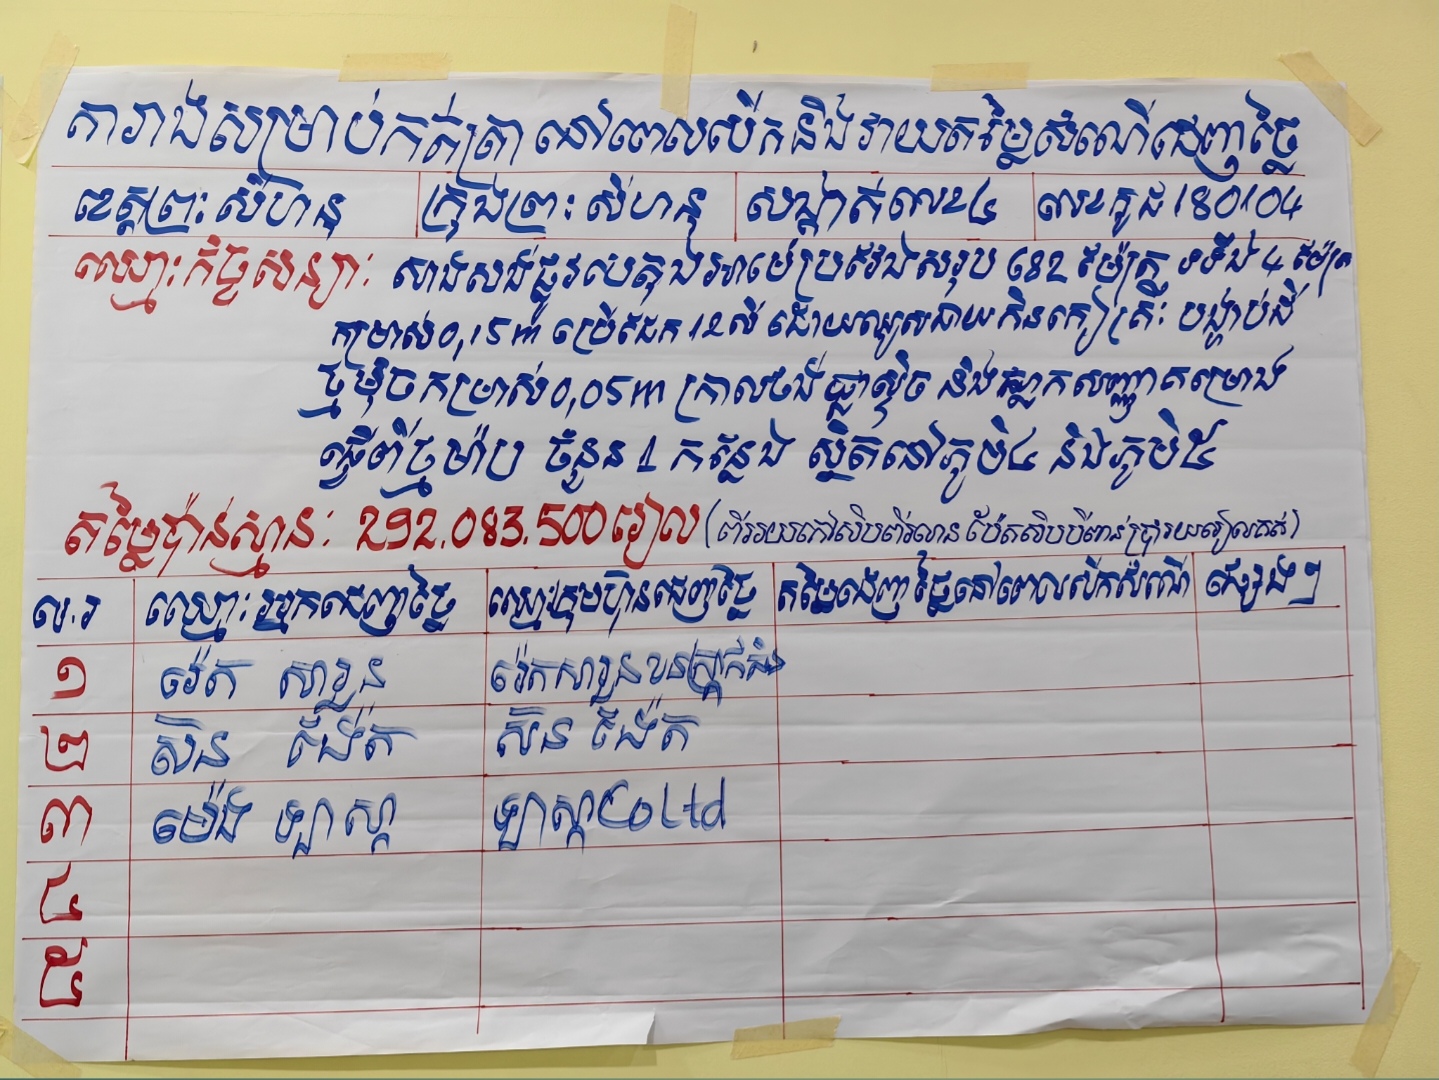 តារាងសម្រាប់កត់ត្រា នៅពេលបើកនិងវាយតម្លៃសំណើដេញថ្លៃ
ខេត្តព្រះសីហនុ ក្រុងព្រះសីហនុ សង្កាត់លេខ៤ លេខកូដ 180104
ឈ្មោះកិច្ចសន្យា: សាងសង់ផ្លូវបេតុងអាម៉េប្រវែងសរុប 682 ម៉ែត្រ ទទឹង 4 ម៉ែត្រ
កម្រាស់ 0,15m ប្រើដែក 12លី ដោយឈូសឆាយកិនកៀត្រីះ បង្ហាប់ដី
ថ្មម៉ិច កម្រាស់ 0,05m ក្រាលថង់ផ្លាស្ទិច និងផ្លាកសញ្ញាគម្រោង
ធ្វើពីថ្មម៉ាប ចំនួន 1 កន្លែង ស្ថិតនៅភូមិ៤ និងភូមិ៥
តម្លៃប៉ាន់ស្មាន: 292.083.500រៀល (ពីររយកៅសិបពីរលាន ប៉ែតសិបបីពាន់ប្រាំរយរៀលគត់)
ល.រ ឈ្មោះអ្នកដេញថ្លៃ ឈ្មោះក្រុមហ៊ុនដេញថ្លៃ តម្លៃដេញថ្លៃនៅពេលបើកសំណើ ផ្សេងៗ
១ វ៉េត សារួន វ៉េតសារួន
២ ស៊ិន ង៉ែត ស៊ិន ង៉ែត
៣ ម៉េង ឡាស្កា ឡាស្កា Co Ltd
៤
៥